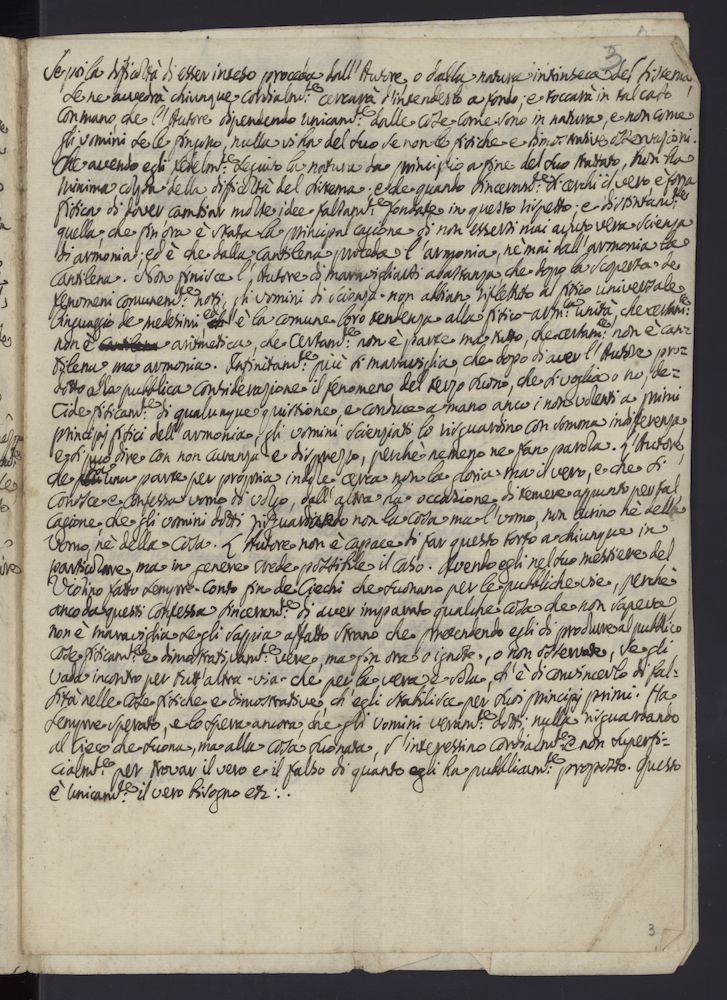 3
Se poi la dificoltà di esser inteso proceda dall'Autore, o dalla natura intrinseca del sistema,
se ne avvedrà chiunque cordialm.te cercarà d'intenderlo a fondo; e toccarà in tal caso
con mano che l'Autore dipendendo unicam.te dalle cose come sono in natura, e non come
gli uomini se le fingono, nulla vi ha del suo se non le fisiche e dimostrative osservazioni.
Che avendo egli fedelm.te seguito la natura da principio a fine del suo trattato, non ha
minima colpa della dificoltà del sistema: e che quando sinceram.te si cerchi il vero è forza
fisica di dover cambiar molte idee falsam.te fondate in questo rispetto: e distintam.te
quella, che fin ora è stata la principal cagione di non essersi mai avuto vera scienza
di armonia; ed è che dalla cantilena proceda l'armonia, nè mai dall'armonia la
cantilena. Non finisce l'Autore di maravigliarsi abastanza che dopo la scoperta de'
fenomeni comunem.te noti, gli uomini di scienza non abbian riflettuto al fisico universale
linguaggio de' medesimi ed è la comune loro tendenza alla fisico-arm.ca unità, che certam.te
non è aritmetica, che certam.te non è parte ma tutto, che certam.te non è can-
tilena ma armonia. Infinitam.te più si maraviglia, che dopo di aver l'Autore pro-
dotto alla pubblica considerazione il fenomeno del terzo suono, che si voglia o no, de-
cide fisicam.te di qualunque quistione, e conduce a mano anco i non volenti a primi
principj fisici dell'armonia, gli uomini scienziati lo risguardino con somma indiferenza,
e si può dire con non curanza e disprezzo, perchè nemeno ne fan parola. L'Autore,
che da una parte per propria indole cerca non la gloria ma il vero, e che si
conosce e confessa uomo di volgo, dall'altra ha occasione di temere appunto per tal
cagione che gli uomini dotti risguardando non la cosa ma l'uomo, non curino nè dell'
uomo, nè della cosa. L'Autore non è capace di far questo torto a chiunque in
particolare, ma in genere crede possibile il caso. Avendo egli nel suo mestiere del
Violino fatto sempre conto fin de' Ciechi che suonano per le pubbliche vie, perchè
anco da questi confessa sinceram.te di aver imparato qualche cosa che non sapeva,
non è maraviglia se gli sappia affatto strano che pretendendo egli di produrre al pubblico
cose fisicam.te e dimostrativam.te vere, ma fin ora o ignote, o non osservate, se gli
vada incontro per tutt'altra via che per la vera e sola, ch'è di convincerlo di fal-
sità nelle cose fisiche e dimostrative ch'egli stabilisce per suoi principj primi. Ha
sempre sperato, e lo spera ancora, che gli uomini veram.te dotti, nulla risguardando
al Cieco che suona, ma alla cosa suonata, s'interessino cordialm.te e non superfi-
cialm.te per trovar il vero e il falso di quanto egli ha pubblicam.te proposto. Questo
è unicam.te il vero bisogno etc:.
3